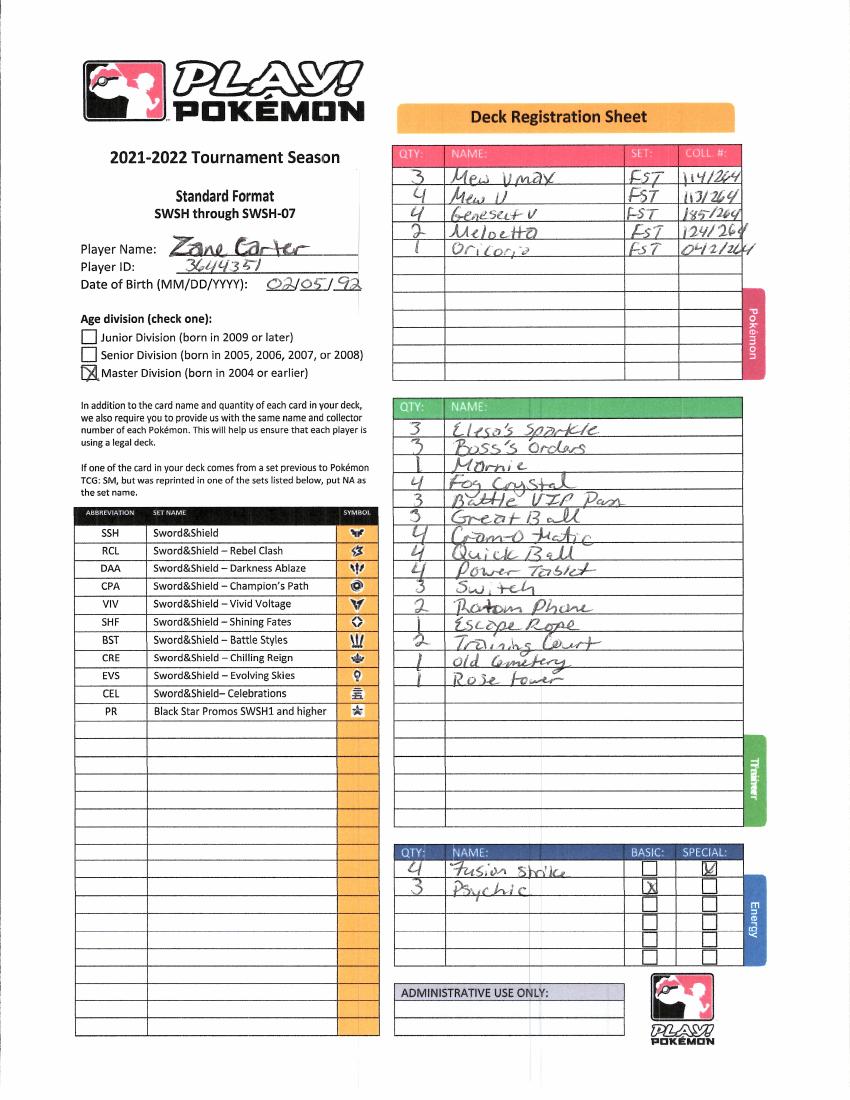 PLAY!
POKÉMON
2021-2022 Tournament Season
Standard Format
SWSH through SWSH-07
Player Name: Zane Carter
Player ID: 3644351
Date of Birth (MM/DD/YYYY): 02/05/92
Age division (check one):
Junior Division (born in 2009 or later)
Senior Division (born in 2005, 2006, 2007, or 2008)
Master Division (born in 2004 or earlier)
In addition to the card name and quantity of each card in your deck,
we also require you to provide us with the same name and collector
number of each Pokémon. This will help us ensure that each player is
using a legal deck.
If one of the card in your deck comes from a set previous to Pokémon
TCG: SM, but was reprinted in one of the sets listed below, put NA as
the set name.
ABBREVIATION SET NAME SYMBOL
SSH Sword&Shield
RCL Sword&Shield – Rebel Clash
DAA Sword&Shield – Darkness Ablaze
CPA Sword&Shield – Champion's Path
VIV Sword&Shield – Vivid Voltage
SHF Sword&Shield – Shining Fates
BST Sword&Shield – Battle Styles
CRE Sword&Shield – Chilling Reign
EVS Sword&Shield – Evolving Skies
CEL Sword&Shield– Celebrations
PR Black Star Promos SWSH1 and higher
Deck Registration Sheet
QTY: NAME: SET: COLL. #:
3 Mew Vmax FST 114/264
4 Mew V FST 113/264
4 Genesect V FST 185/264
2 Meloetta FST 124/264
1 Oricorio FST 042/264
Pokémon
QTY: NAME:
3 Elesa's Sparkle
3 Boss's Orders
1 Marnie
4 Fog Crystal
3 Battle VIP Pass
3 Great Ball
4 Cram-O-Matic
4 Quick Ball
4 Power Tablet
3 Switch
2 Rotom Phone
1 Escape Rope
2 Training Court
1 Old Cemetery
1 Rose tower
Trainer
QTY: NAME: BASIC: SPECIAL:
4 Fusion Strike
3 Psychic X
Energy
ADMINISTRATIVE USE ONLY:
PLAY!
POKÉMON